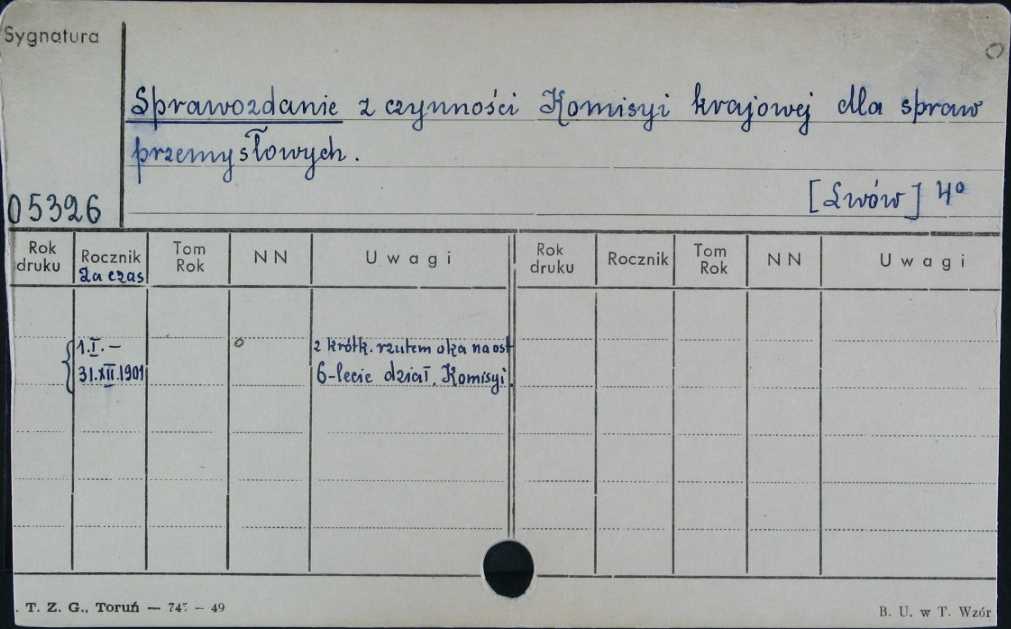 Sygnatura
Sprawozdanie z czynności Komisyi krajowej dla spraw
przemysłowych.
[Lwów] 4°
05326
Rok druku Rocznik Tom Rok NN Uwagi Rok druku Rocznik Tom Rok NN Uwagi
Za czas
1.I. — z krótk. rzutem oka na ost
31.XII.1901 6-lecie dział. Komisyi.
. T. Z. G., Toruń — 745 — 49
B. U. w T. Wzór